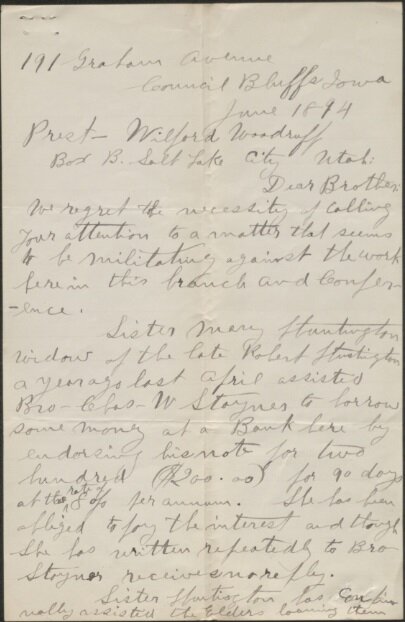 191 Graham Avenue
Council Bluffs Iowa
June 1894
Prest- Wilford Woodruff
Box B. Salt Lake City Utah:
Dear Brother:
We regret the necessity of calling
your attention to a matter that seems
to be militating against the work
here in this branch and Confer-
-ence.
Sister Mary Huntington
widow of the late Robert Huntington
a year ago last April assisted
Bro- Chas- W Stayner to borrow
some money at a Bank here by
endorsing his note for two
hundred ($200.00) for 90 days
at the rate of 8 % per annum. She has been
obliged to pay the interest and though
She has written repeatedly to Bro
Stayner receives no reply.
Sister Huntington has contin
nually assisted the Elders loaning them